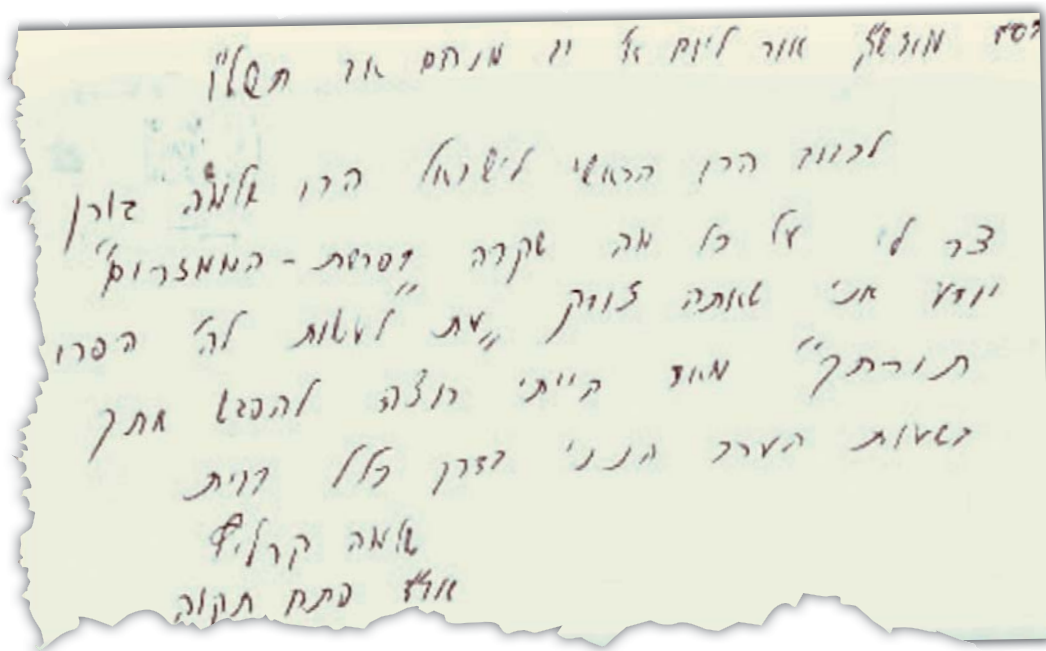 בס״ד מוצש״ק אור ליום א׳ יו מנחם אב תשל״ו
לכבוד הרב הראשי לישראל הרב שלמה גורן
צר לי על כל מה שקרה בפרשת - הממזרים״
יודע אני שאתה צודק ״עת לעשות לה׳ הפרו
תורתך״ מאוד הייתי רוצה להפגש אתך
בשעות הערב הנני בדרך כלל בבית
שלמה קרליץ
אוה״ע פתח תקוה